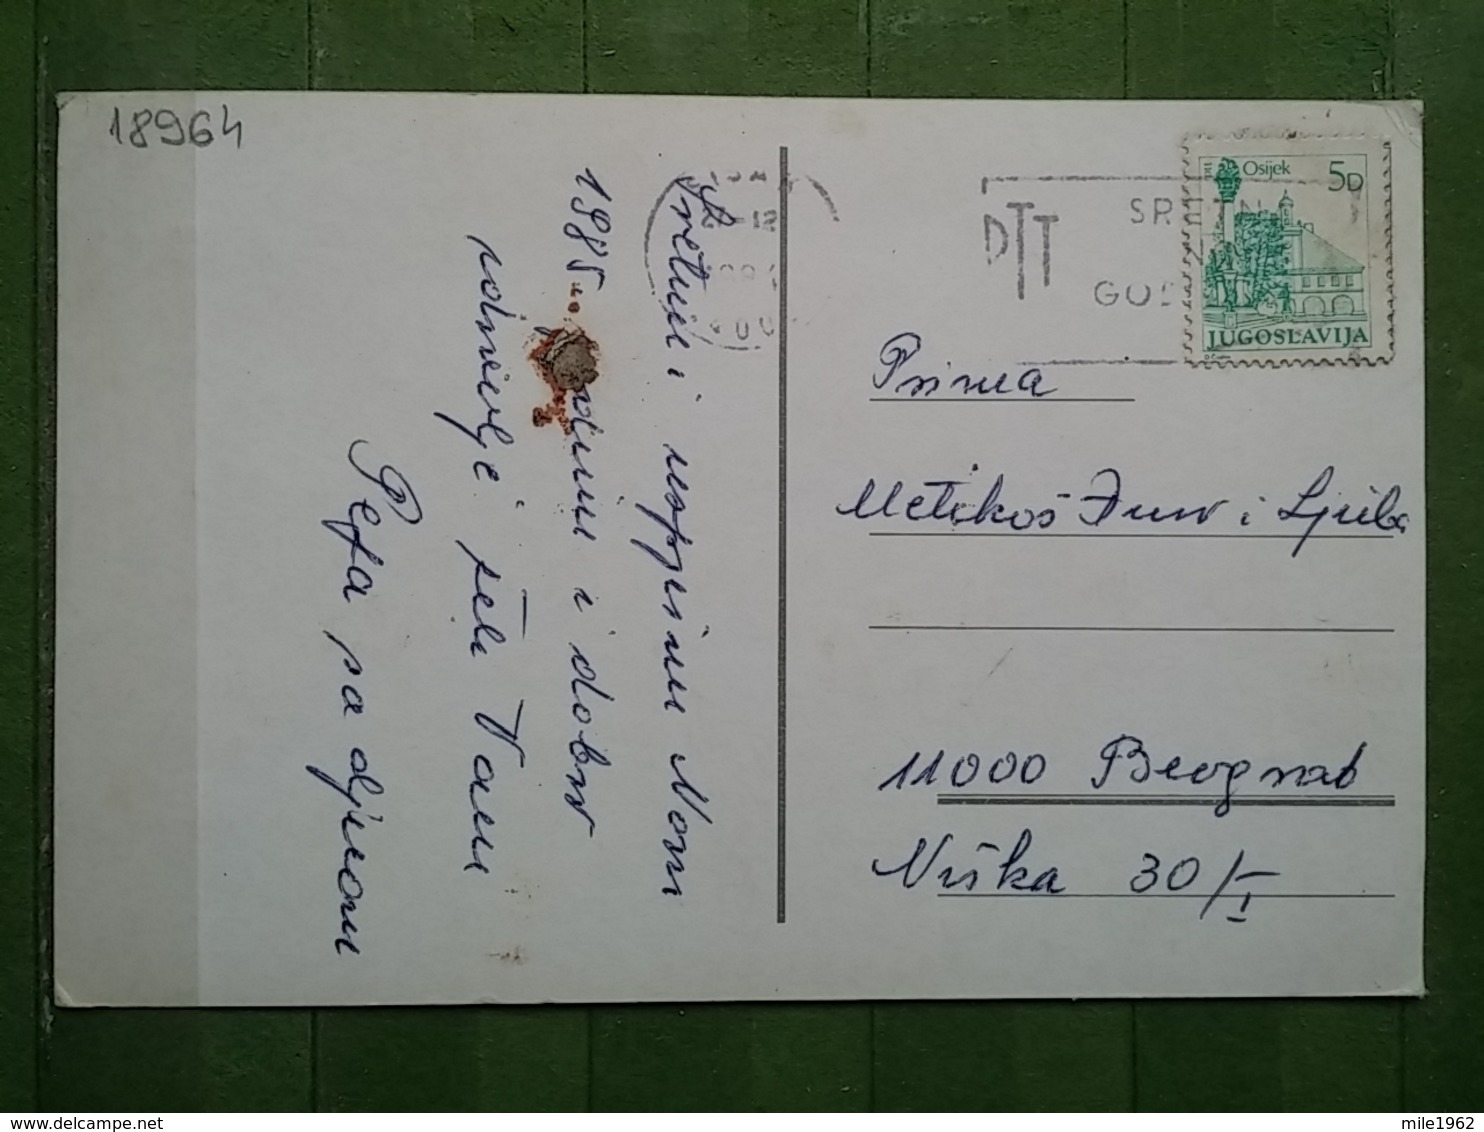 18964
Sretnu i uspješnu Novu
1985. godinu i dobro
zdravlje želi Vam
Pepa sa djecom
PTT
SRETN
GOD
Osijek 5D
JUGOSLAVIJA
Prima
Metikoš Đuro i Ljuba
11000 Beograd
Niška 30/I
mile1962